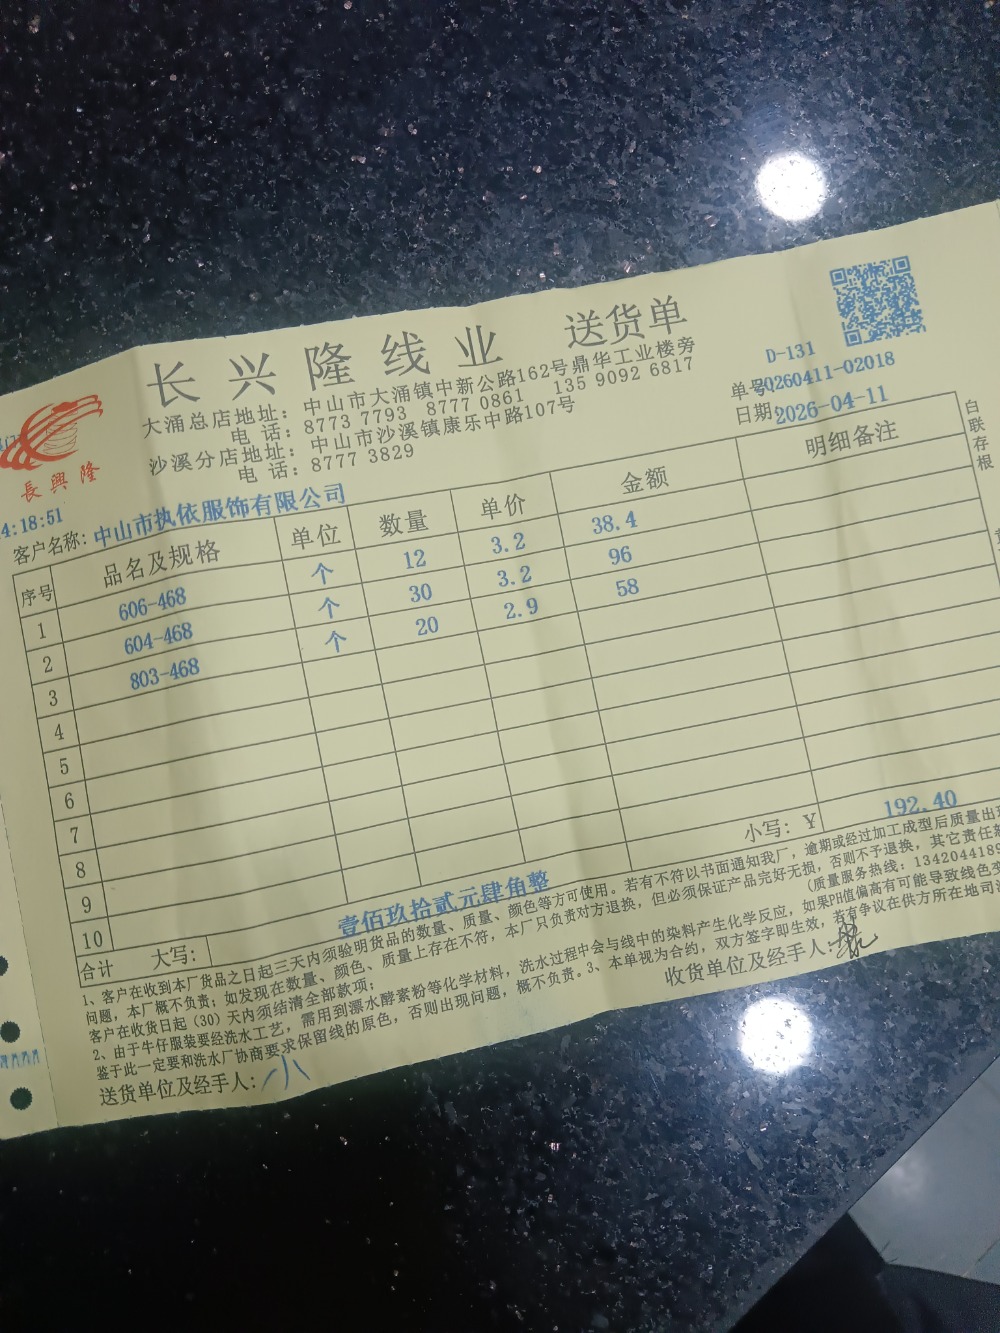 长兴隆线业 送货单
大涌总店地址: 中山市大涌镇中新公路162号鼎华工业楼旁
电 话: 8773 7793 8777 0861 135 9092 6817
沙溪分店地址: 中山市沙溪镇康乐中路107号
电 话: 8777 3829
D-131
单号 0260411-02018
日期: 2026-04-11
長興隆
4:18:51
客户名称: 中山市执依服饰有限公司
序号 品名及规格 单位 数量 单价 金额 明细备注
1 606-468 个 12 3.2 38.4
2 604-468 个 30 3.2 96
3 803-468 个 20 2.9 58
4
5
6
7
8
9
10
小写: ¥ 192.40
合计 大写: 壹佰玖拾贰元肆角整
白联存根
1、客户在收到本厂货品之日起三天内须验明货品的数量、质量、颜色等方可使用。若有不符以书面通知我厂, 逾期或经过加工成型后质量出现
问题, 本厂概不负责; 如发现在数量、颜色、质量上存在不符, 本厂只负责对方退换, 但必须保证产品完好无损, 否则不予退换, 其它责任
客户在收货日起 (30) 天内须结清全部款项;
(质量服务热线: 1342044189
2、由于牛仔服装要经洗水工艺, 需用到漂水酵素粉等化学材料, 洗水过程中会与线中的染料产生化学反应, 如果PH值偏高有可能导致线色变
鉴于此一定要和洗水厂协商要求保留线的原色, 否则出现问题, 概不负责。3、本单视为合约, 双方签字即生效, 若有争议在供方所在地司
送货单位及经手人: 小
收货单位及经手人: